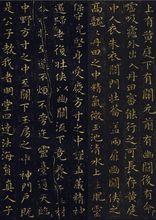 上有黃庭下有關元前有幽闕後有命
吸廬外出入丹田審能行之可長存黃庭
中人衣朱衣關門壯籥蓋兩扉幽闕俠之高
巍巍丹田之中精氣微玉池清水上生肥
保守完堅身受慶方寸之中謹蓋藏精神
還歸老復壯俠以幽闕流下竟養子玉樹
不煩不旁迕靈臺通天臨
中野方寸之中至關下玉房之中神門戶既
是公子教我者明堂四達法海員真人子